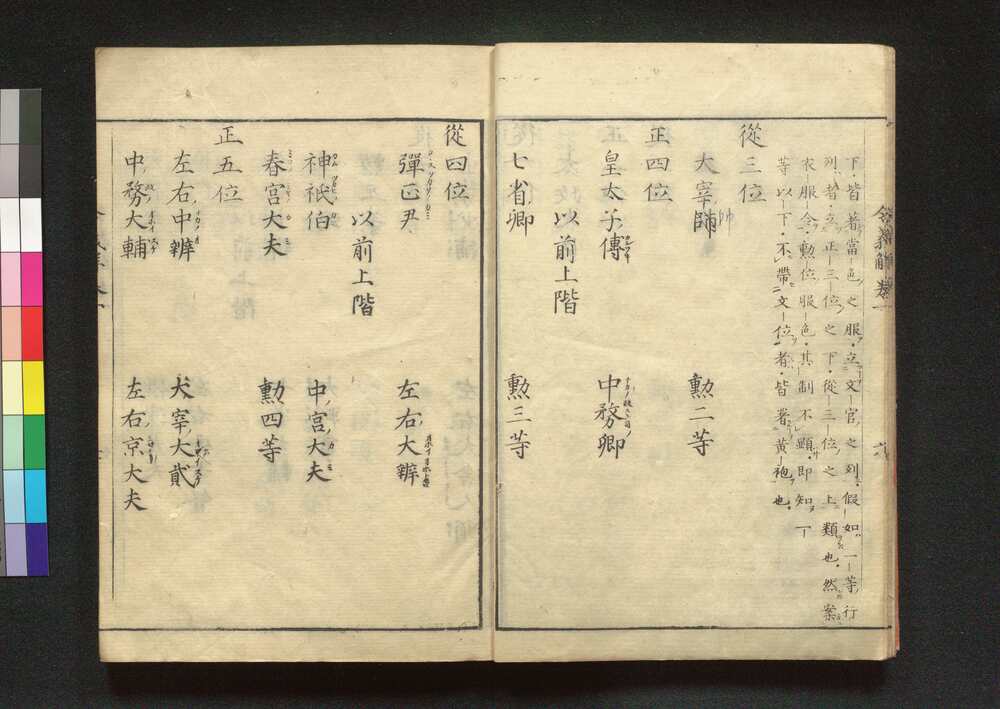 下皆著當色之服立文官之列假如一等行
列皆立正三位之下從三位之上類也然案
衣服令勲位服色其制不顯即知一
等以下不帶文位者皆著黄袍也
從三位
大宰帥 勲二等
正四位
皇太子傅 中務卿
以前上階
七省卿 勲三等
從四位
彈正尹 左右大辨
以前上階
神祇伯 中宮大夫
春宮大夫 勲四等
正五位
左右中辨 大宰大貳
中務大輔 左右京大夫